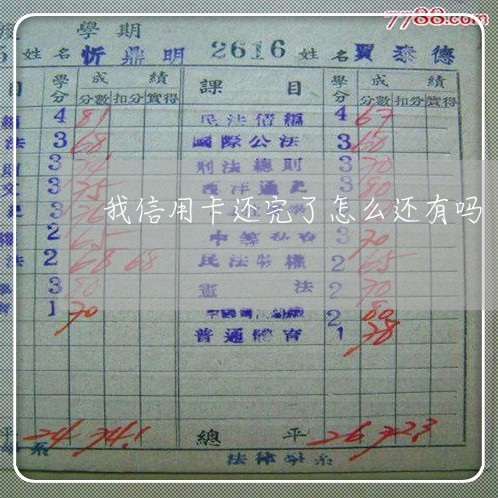 7788.com
學期
姓名 忻鼎明 2616 姓名 賈泰德
目 學分 成績 課目 學分 成績
分數 扣分 實得 分數 扣分 實得
4 81 民法債編 4 67
法 3 68 國際公法 3 60
3 刑法總則 3 70
3 75 西洋通史 3 80
3 76
我信用卡还完了怎么还有吗
2 65 3 70
法 2 68 68 民法物權 2 65
3 80 憲法 2 70
1 70 2 80
普通體育 1 78
平 24 74.1 總平 26 72.3
系 法律學系